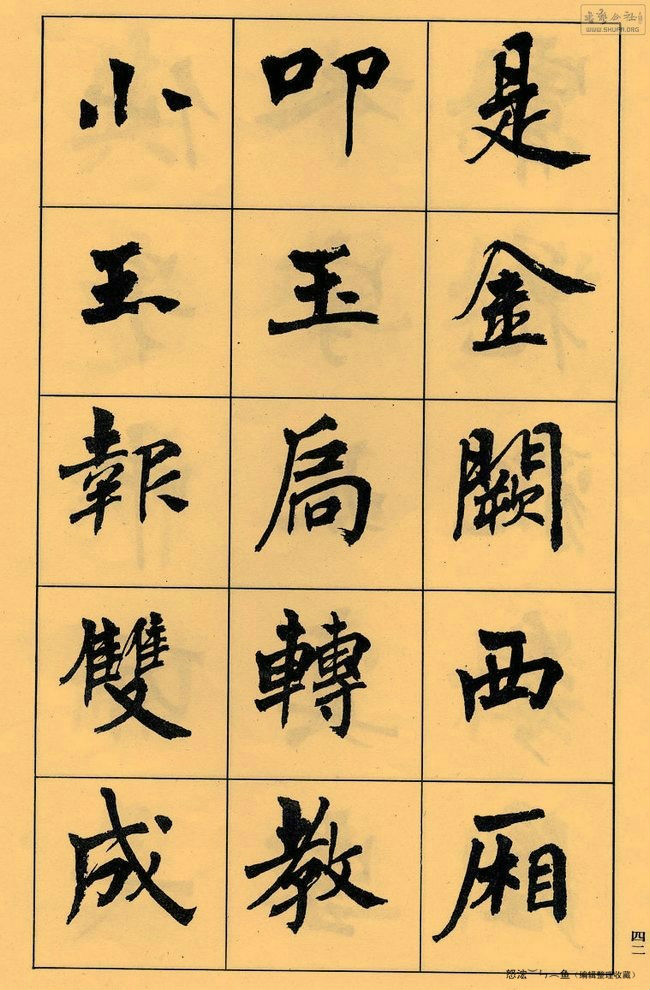 是金闕西厢
叩玉扃轉教
小玉報雙成
四二
鱼（编辑整理收藏）
公社
WWW.SHUFA.ORG